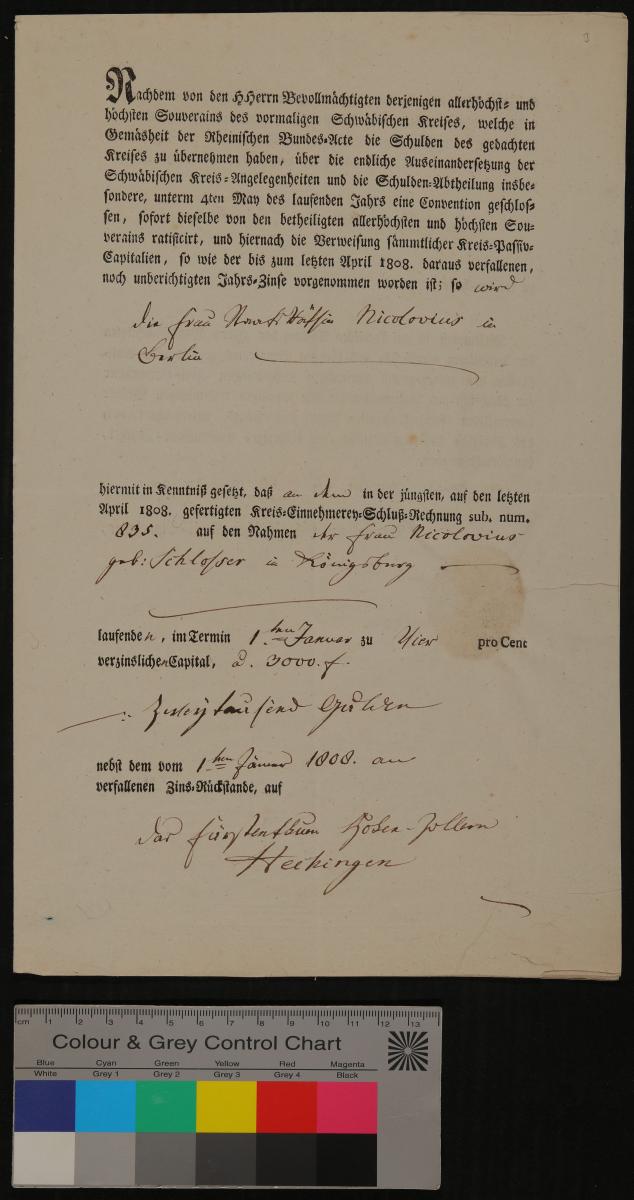 Nachdem von den HHerrn Bevollmächtigten derjenigen allerhöchst- und
höchsten Souverains des vormaligen Schwäbischen Kreises, welche in
Gemäsheit der Rheinischen Bundes-Acte die Schulden des gedachten
Kreises zu übernehmen haben, über die endliche Auseinandersetzung der
Schwäbischen Kreis-Angelegenheiten und die Schulden-Abtheilung insbe-
sondere, unterm 4ten May des laufenden Jahrs eine Convention geschlos-
sen, sofort dieselbe von den betheiligten allerhöchsten und höchsten Sou-
verains ratificirt, und hiernach die Verweisung sämmtlicher Kreis-Passiv-
Capitalien, so wie der bis zum letzten April 1808. daraus verfallenen,
noch unberichtigten Jahrs-Zinse vorgenommen worden ist; so wird
die Frau Nicolovius in
Berlin
hiermit in Kenntniß gesetzt, daß an dem in der jüngsten, auf den letzten
April 1808. gefertigten Kreis-Einnehmerey-Schluß-Rechnung sub. num.
835. auf den Nahmen der Frau Nicolovius
geb: Schlosser in Königsburg
laufenden, im Termin 1.ten Januar zu Vier pro Cent
verzinslichen Capital, à. 3000. f.
tausend Gulden
nebst dem vom 1ten Jäner 1808. an
verfallenen Zins-Rückstande, auf
das Fürstenthum Hohen-Zollern
Hechingen
Colour & Grey Control Chart
cm 1 2 3 4 5 6 7 8 9 10 11 12 13
Blue Cyan Green Yellow Red Magenta
White Grey 1 Grey 2 Grey 3 Grey 4 Black